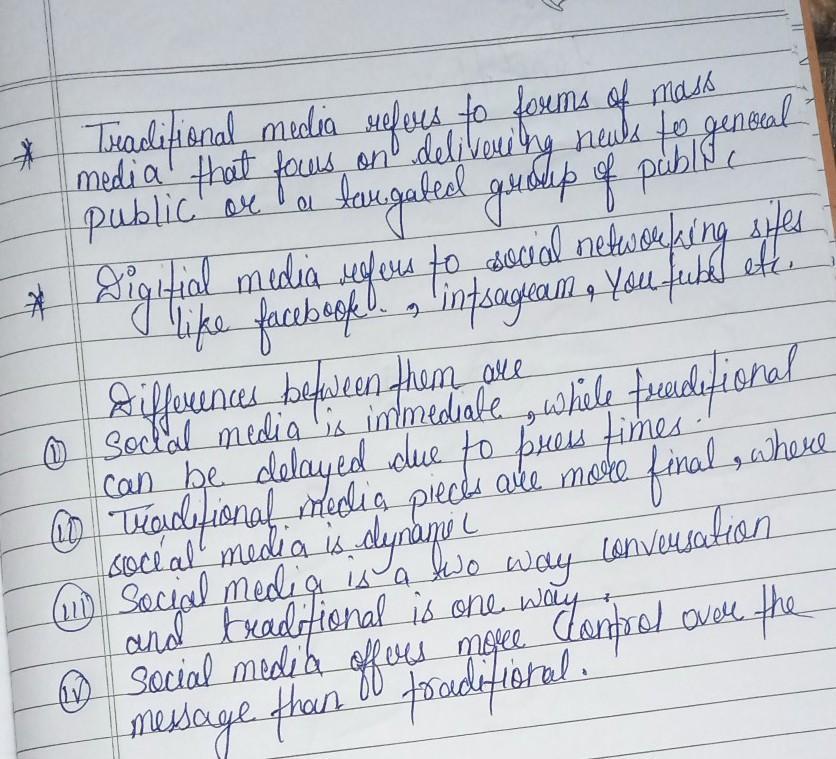 * Traditional media refers to forms of mass
media that focus on delivering news to general
public or a targated group of public
* Digitial media refers to social networking sites
like facebook., intsagram, You tube etc.
Differences between them are
(i) Social media is immediate, while traditional
can be delayed due to press times.
(ii) Traditional media pieces are more final, where
social media is dynamic
(iii) Social media is a two way conversation
and traditional is one way.
(iv) Social media offers more Control over the
message than traditional.